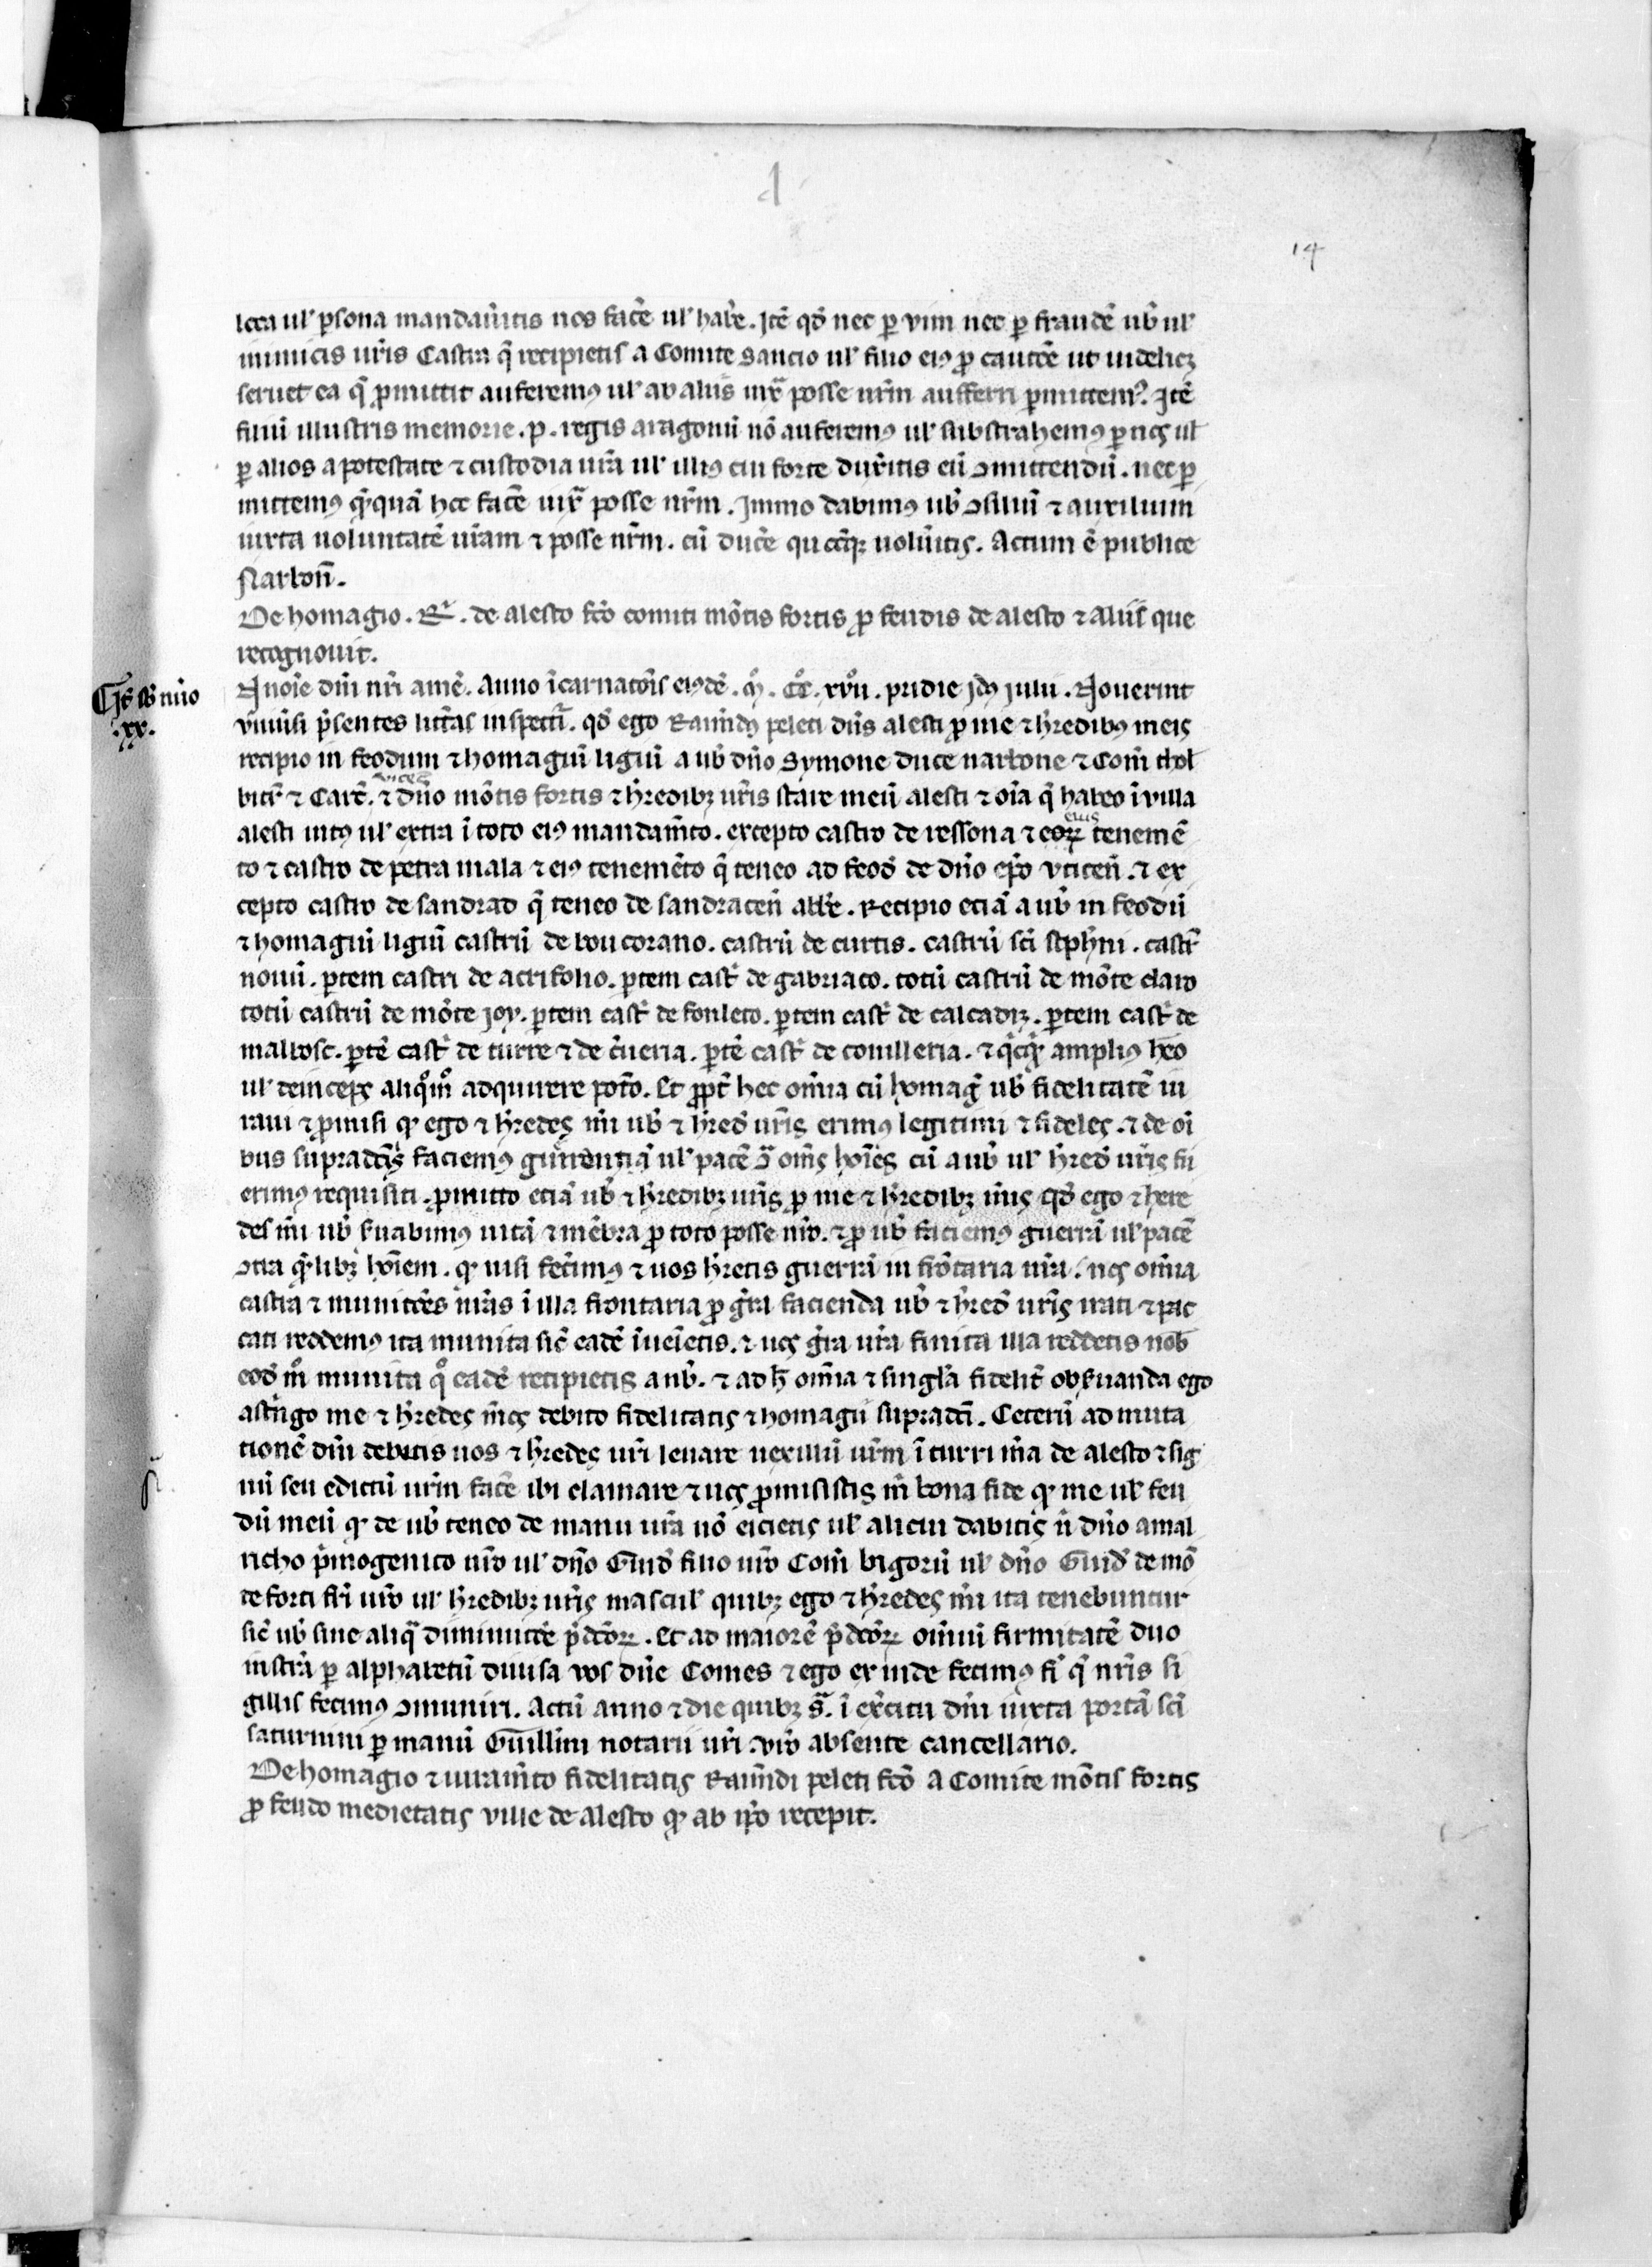 d
14
loca ul' ꝑsona mandaũitis nos fac̃e ul' hab̃e. Itẽ qd̃ nec ꝑ vim nec ꝑ fraudẽ ub̃ ul'
inimicis ur̃is Castra q̃ recipietis a Comite Sancio ul' filio eiꝰ ꝓ cautõe ut uidelicꝫ
seruet ea q̃ ꝓmittit auferemꝰ ul' ab aliis iux̃ posse nr̃m aufferri ꝑmittemꝰ. Itẽ
filiũ illustris memorie .p. regis aragonũ nõ auferemꝰ ul' substrahemꝰ ꝑ nos ul'
ꝑ alios a potestate ⁊ custodia ur̃a ul' illiꝰ cui forte dux̃itis eũ ꝯmittendũ. nec ꝑ
mittemꝰ qͥquã hec fac̃e iux̃ posse nr̃m. Immo dabimꝰ ub̃ ꝯsiliũ ⁊ auxilium
iuxta uoluntatẽ ur̃am ⁊ posse nr̃m. cũ duc̃e quocũqꝫ uolũitis. Actum ẽ publice
Narbon̄.
De homagio .R̃. de alesto fc̃o comiti mõtis fortis ꝓ feudis de alesto ⁊ aliis que
recognouit.
Jt̃ sb̃ nũo
.xx.
In noĩe dñi nr̃i amẽ. Anno ĩcarnatõis eiꝰdẽ .M̊. CC̊. xvıı̊. pridie Idꝰ Iulii. Nouerint
vniũsi p̃sentes litt̃as inspectũi. qd̃ ego Raim̃dꝰ peleti dñs alesti ꝓ me ⁊ h̃redibꝰ meis
recipio in feodum ⁊ homagiũ ligiũ a ub̃ dño Symone duce narbone ⁊ Com̃ thol'
vicec̃
bitr̃ ⁊ Carc̃. ⁊ dño mõtis fortis ⁊ h̃redibꝫ ur̃is stare meũ alesti ⁊ oĩa q̃ habeo ĩ villa
alesti intꝰ ul' extra ĩ toto eiꝰ mandam̃to. excepto castro de ressona ⁊ eoꝝ tenemẽ
eius
to ⁊ castro de petra mala ⁊ eiꝰ tenemẽto q̃ teneo ad feod̃ de dño ep̃o vticen̄. ⁊ ex
cepto castro de sandrad q̃ teneo de sandracen̄ abb̃e. Recipio eciã a ub̃ in feodũ
⁊ homagiũ ligiũ castrũ de boucorano. castrũ de curtis. castrũ sc̃i steph̃ni. castr̃
nouũ. ꝑtem castri de acrifolio. ꝑtem castr̃ de gabriaco. totũ castrũ de mõte claro
totũ castrũ de mõte Joy. ꝑtem castr̃ de fonleto. ꝑtem castr̃ de calcadiꝫ. ꝑtem castr̃ de
malbosc. ꝑtẽ castr̃ de turre ⁊ de c̃ueria. ꝑtẽ castr̃ de couilleria. ⁊ qͥcqͥd ampliꝰ hẽo
ul' deinceps aliqͦ mͦ adquirere pot̃o. Et ꝓpt̃ hec om̃ia cũ homag̃ ub̃ fidelitatẽ iu
raui ⁊ ꝓmisi qͥ ego ⁊ h̃redes m̃i ub̃ ⁊ h̃red̃ ur̃is erimꝰ legitimi ⁊ fideles. ⁊ de oĩ
bus supradc̃is faciemꝰ guirẽtiã ul' pacẽ ꝯ̃ om̃s hoĩes cũ a ub̃ ul' h̃red̃ ur̃is fu
erimꝰ requisiti. ꝓmitto eciã ub̃ ⁊ h̃redibꝫ ur̃is ꝓ me ⁊ h̃redibꝫ m̃is qd̃ ego ⁊ here
des m̃i ub̃ s̃uabimꝰ uitã ⁊ mẽbra ꝓ toto posse nr̃o. ⁊ ꝓ ub̃ faciemꝰ guerrã ul' pacẽ
ꝯtra qͥlibꝫ hoĩem. qͥ nisi fec̃imꝰ ⁊ uos h̃retis guerrã in frõtaria ur̃a. nos om̃ia
castra ⁊ munitões nr̃as ĩ illa frontaria ꝓ gr̃a facienda ub̃ ⁊ h̃red̃ ur̃is irati ⁊ pac
cati reddemꝰ ita munita sic̃ eadẽ ĩueĩetis. ⁊ uos gr̃a ur̃a finita illa reddetis nob̃
eod̃ mͦ munita qͦ eadẽ recipietis a nb̃. ⁊ ad h̃ om̃ia ⁊ singl'a fidelit̃ obs̃uanda ego
astrĩgo me ⁊ h̃redes m̃os debito fidelitatis ⁊ homagii supradc̃i. Ceterũ ad muta
tionẽ dñi debetis uos ⁊ h̃redes ur̃i leuare uexillũ ur̃m ĩ turri m̃a de alesto ⁊ sig
nũ seu edictũ ur̃m fac̃e ibi clamare ⁊ uos ꝓmisistis m̃ bona fide qͥ me ul' feu
dũ meũ qͥ de ub̃ teneo de manu ur̃a nõ eicietis ul' alicui dabitis ñ dño amal
richo p̃mogenito ur̃o ul' dño Guid̃ filio ur̃o Com̃ bigorũ ul' dño Guid̃ de mõ
te forti fr̃i ur̃o ul' h̃redibꝫ ur̃is mascul' quibꝫ ego ⁊ h̃redes m̃i ita tenebuntur
sic̃ ub̃ sine aliqͣ diminutõe p̃dc̃oꝝ. Et ad maiorẽ p̃dc̃oꝝ om̃iũ firmitatẽ duo
instr̃a ꝑ alphabetũ diuisa vos dñe Comes ⁊ ego ex inde fecimꝰ fi' q̃ nr̃is si
gillis fecimꝰ ꝯmuniri. Actũ anno ⁊ die quibꝫ s̃. ĩ ex̃citu dñi iuxta portã sc̃i
saturnini ꝑ manũ Guill̃mi notarii ur̃i. vr̃o absente cancellario.
De homagio ⁊ iuram̃to fidelitatis Raim̃di peleti fc̃o a Comite mõtis fortis
ꝓ feudo medietatis ville de alesto qͥ ab ip̃o recepit.